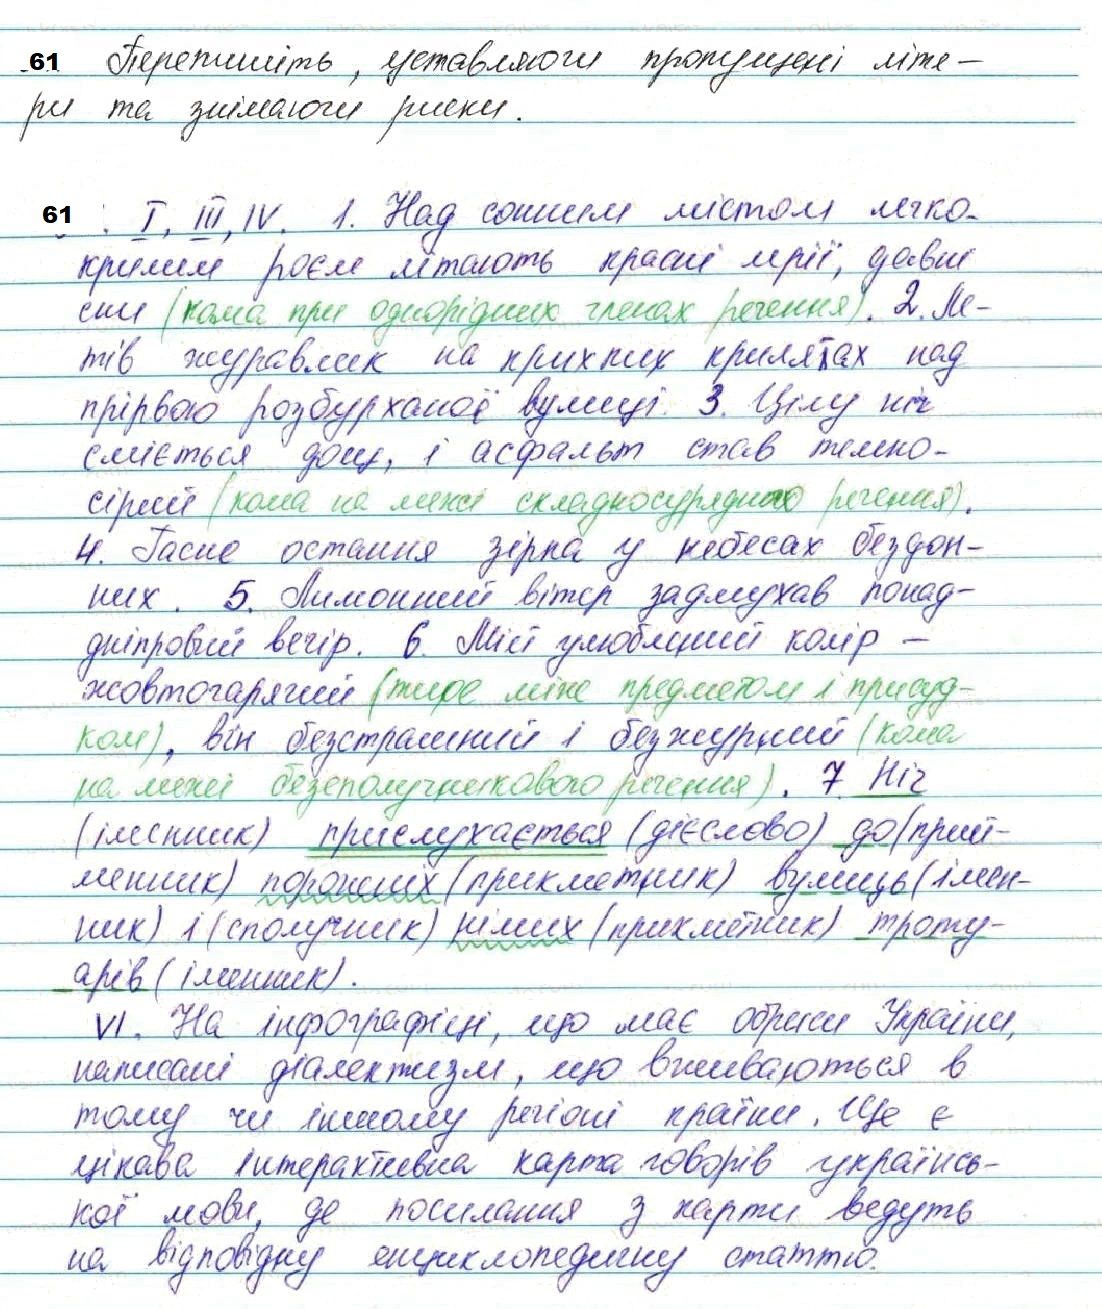 61 Перепишіть, уставляючи пропущені літе-
ри та знімаючи риски.
61. I, III, IV. 1. Над сонним містом легко-
крилим роєм літають красні мрії, давні
сни (кома при однорідних членах речення). 2. Ле-
тів журавлик на крихких крилятах над
прірвою розбурханої вулиці. 3. Цілу ніч
сміється дощ, і асфальт став темно-
сірий (кома на межі складносурядного речення).
4. Гасне остання зірка у небесах бездон-
них. 5. Лимонний вітер задмухав понад-
дніпровий вечір. 6. Мій улюблений колір –
жовтогарячий (тире між предметом і присуд-
ком), він безстрашний і безжурний (кома
на межі безсполучникового речення). 7. Ніч
(іменник) прислухається (дієслово) до (прий-
менник) порожніх (прикметник) вулиць (імен-
ник) і (сполучник) німих (прикметник) троту-
арів (іменник).
VI. На інфографіці, що має обриси України,
написані діалектизм, що вживаються в
тому чи іншому регіоні країни. Це є
цікава інтерактивна карта говорів українсь-
кої мови, де посилання з карти ведуть
на відповідну енциклопедичну статтю.